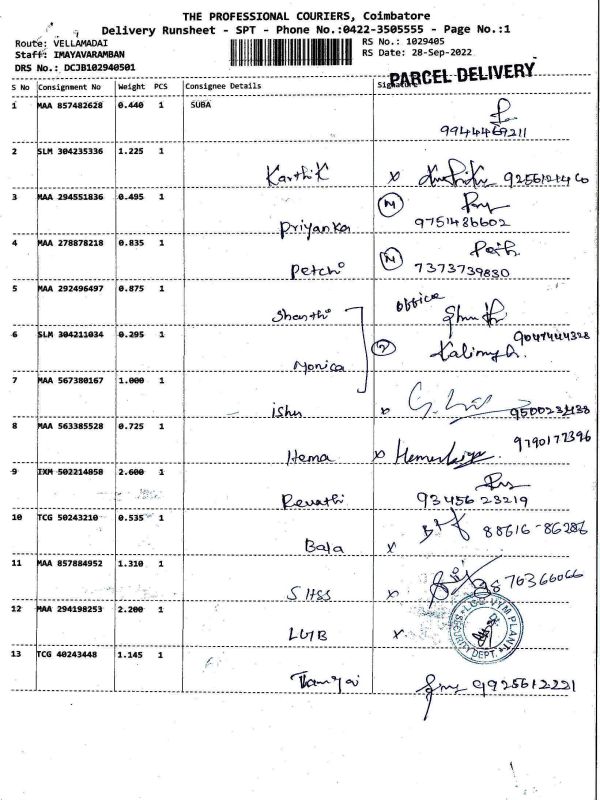 THE PROFESSIONAL COURIERS, Coimbatore
Delivery Runsheet - SPT - Phone No.:0422-3505555 - Page No.:1
Route: VELLAMADAI RS No.: 1029405
Staff: IMAYAVARAMBAN RS Date: 28-Sep-2022
DRS No.: DCJB102940501
PARCEL DELIVERY
S No Consignment No Weight PCS Consignee Details Signature
1 MAA 857482628 0.440 1 SUBA
9944469211
2 SLM 304235336 1.225 1
Karthik x
3 MAA 294551836 0.495 1
Priyanka 9751486602
4 MAA 278878218 0.835 1
Petchi 7373739830
5 MAA 292496497 0.875 1
Shanthi office
6 SLM 304211034 0.295 1
9047444328
Monica
7 MAA 567380167 1.000 1
ishu x
8 MAA 563385528 0.725 1
9790172396
Hema x
9 IXM 502214058 2.600 1
Revathi 9345623219
10 TCG 50243210 0.535 1
88616-86286
Bala x
11 MAA 857884952 1.310 1
876366066
SHSS x
12 MAA 294198253 2.200 1
LGB x
SECURITY DEPT.
13 TCG 40243448 1.145 1
9925612221